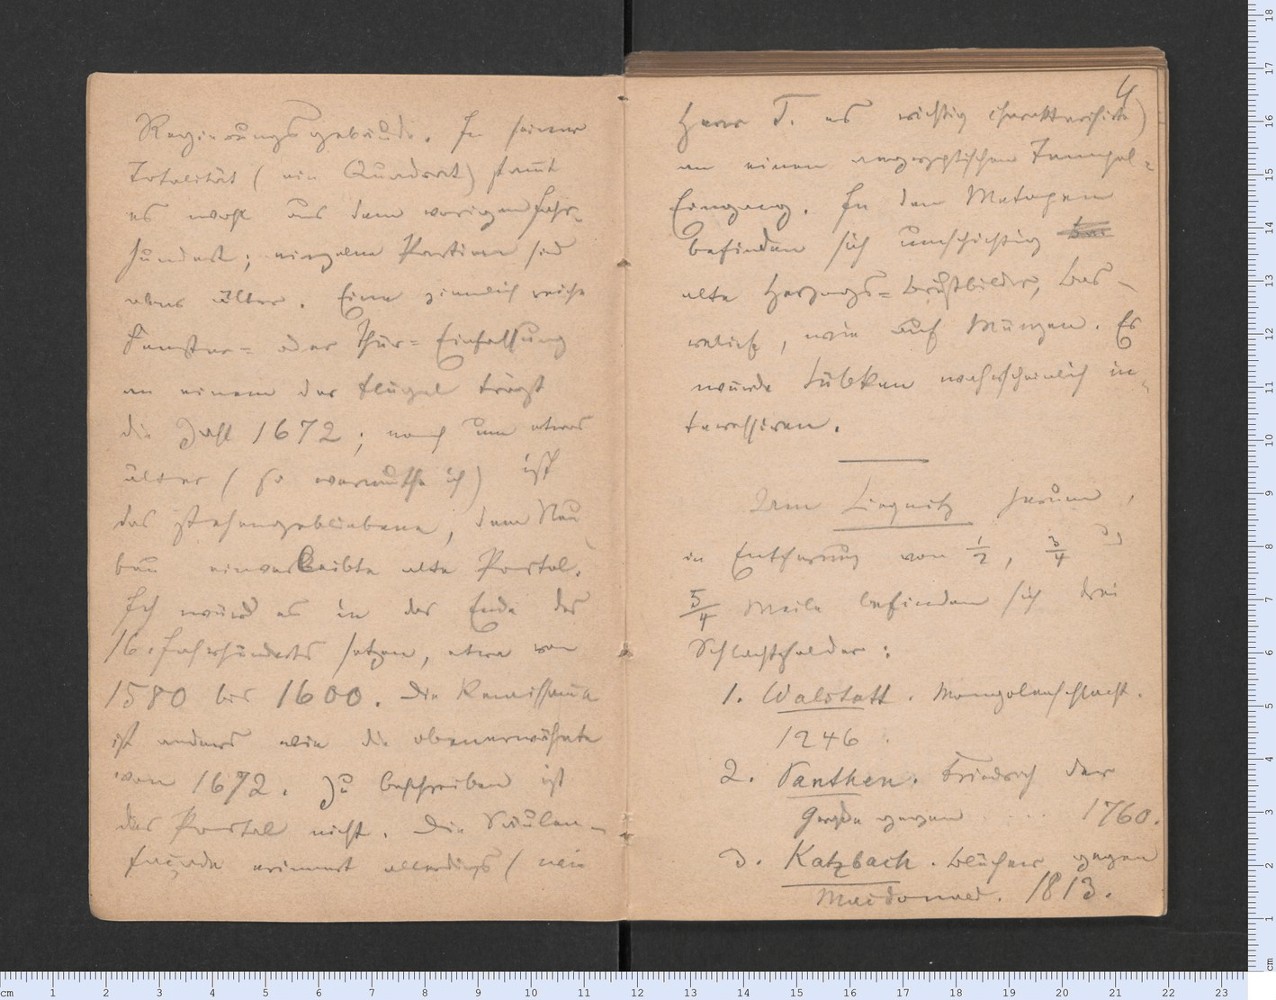 Regierungsgebäude. In seiner
Totalität (ein Quadrat) stam̄t
es wohl aus dem vorigen Jahr-
hundert; einzelne Partieen sind
aber älter. Eine ziemlich reiche
Fenster- oder Thür-Einfassung
an einem der Flügel trägt
die Zahl 1672; noch um etwas
älter (so vermuthe ich) ist
das stehengebliebene, dem Neu
bau einverleibte alte Portal.
Ich würd es in das Ende des
16. Jahrhunderts setzen, etwa von
1580 bis 1600. Die Renaissance
ist anders wie die obenerwähnte
von 1672. Zu beschreiben ist
das Portal nicht. Die Säulen-
façade erinnert allerdings (wie
4
Herr T. es richtig charakterisirte)
an einen aegyptischen Tempel-
Eingang. In den Metopen
befinden sich umschichtig
alte Herzogs-Brustbilder, Bas-
relief, wie auf Münzen. Es
würde Lübken wahrscheinlich in-
teressiren.
Um Liegnitz herum,
in Entfernung von 1/2, 3/4 und
5/4 Meile befinden sich drei
Schlachtfelder:
1. Walstatt. Mongolenschlacht.
1246.
2. Panthen. Friedrich der
Große gegen .... 1760.
3. Katzbach. Blücher gegen
Macdonald. 1813.